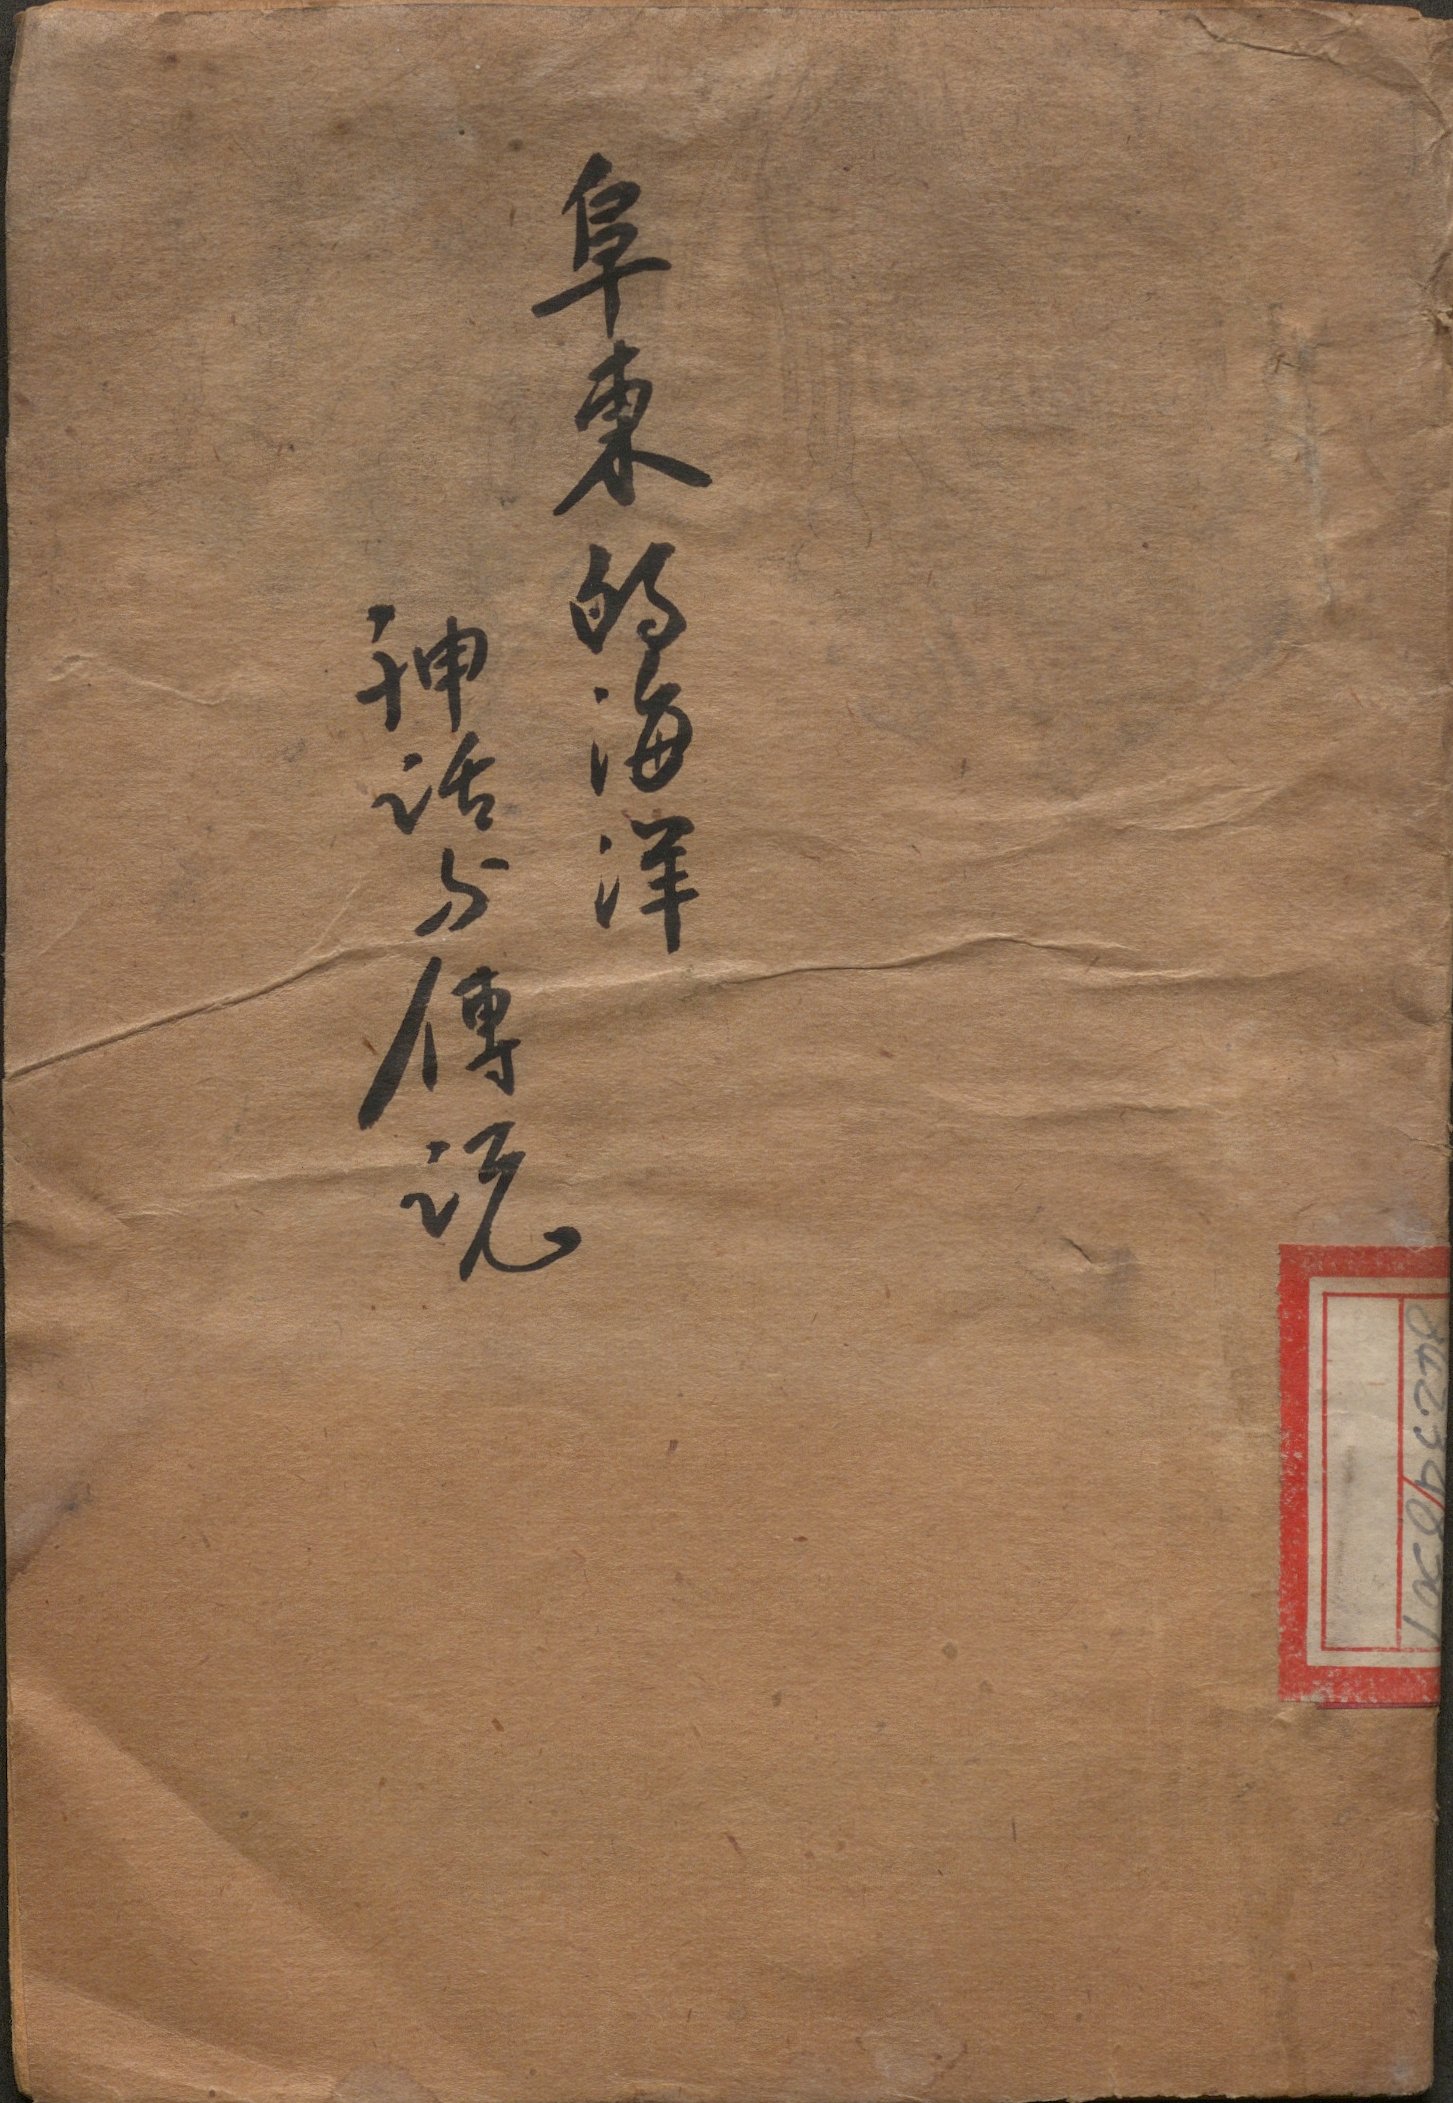 阜東的海洋
神话与傳说